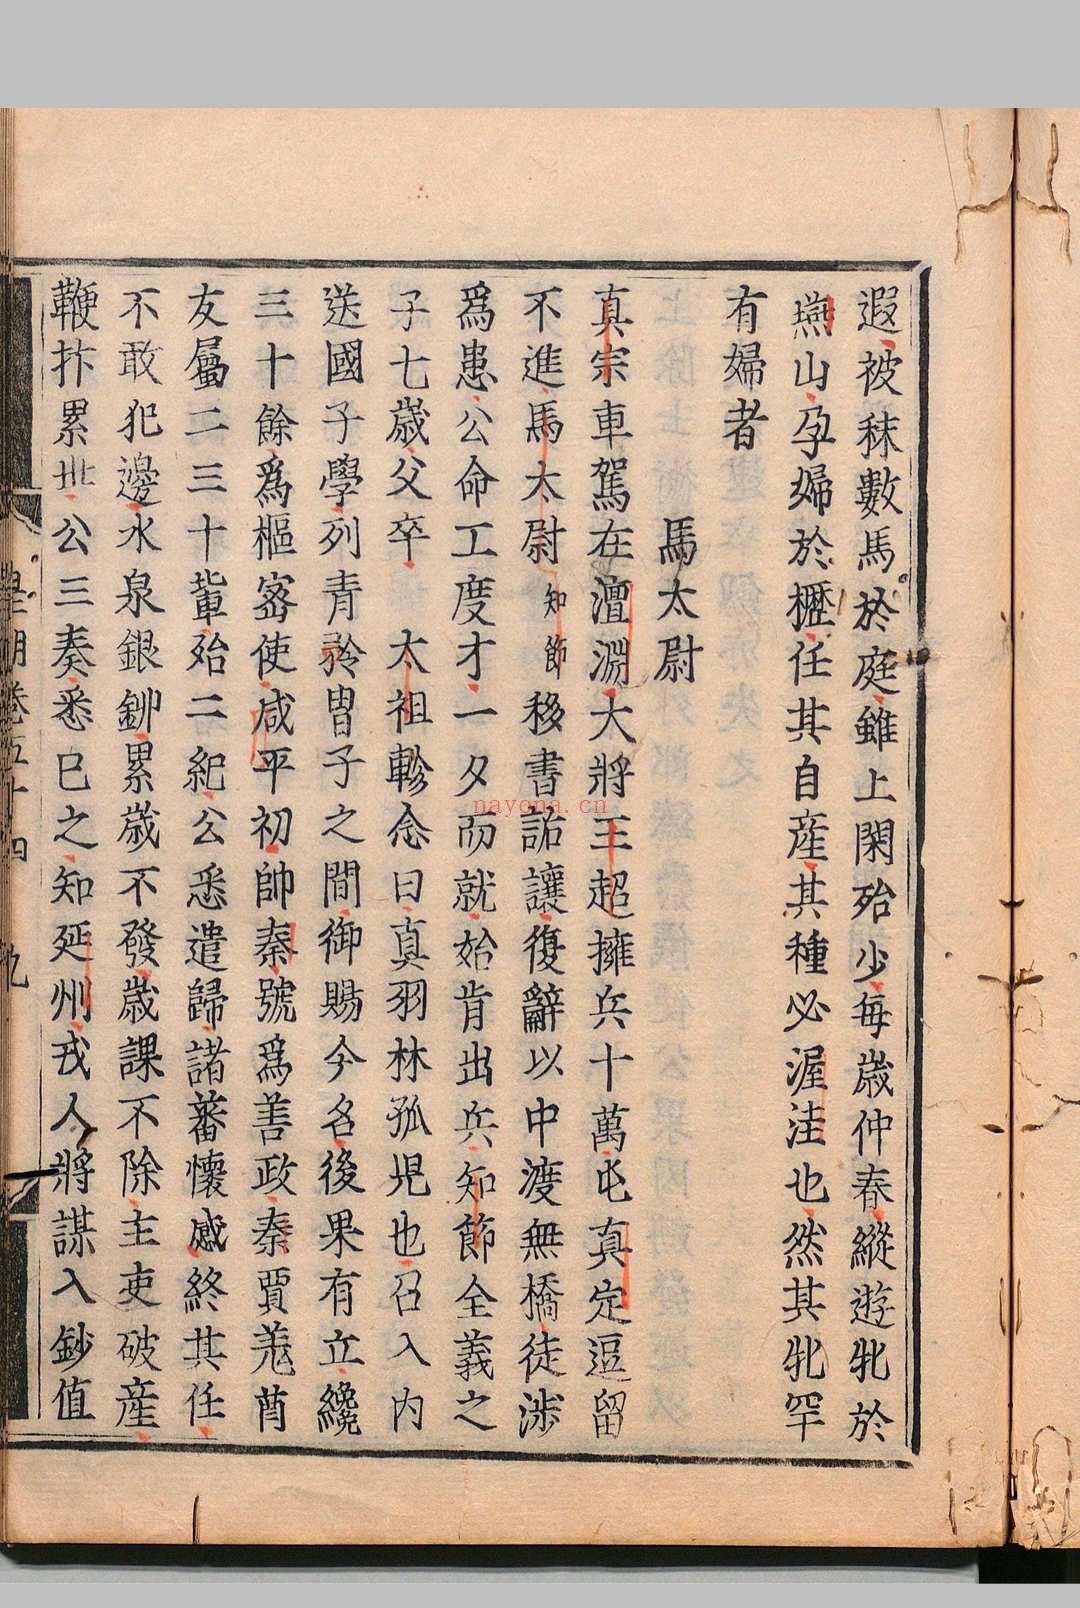 遐被秣數馬於庭雖上閑殆少每歲仲春縱遊牝於
燕山孕婦於櫪任其自産其種必渥洼也然其牝罕
有婦者
馬太尉
真宗車駕在澶淵大將王超擁兵十萬屯真定逗留
不進馬太尉知節移書誚讓復辭以中渡無橋徒涉
爲患公命工度才一夕而就始肯出兵知節全義之
子七歲父卒 太祖軫念曰真羽林孤児也召入内
送國子學列青衿冑子之間御賜今名後果有立纔
三十餘爲樞宻使咸平初帥秦號爲善政秦賈羗酋
友屬二三十軰殆二紀公悉遣歸諸蕃懷感終其任
不敢犯邊水泉銀鉚累歳不發歳課不除主吏破産
鞭抃累丗公三奏悉已之知延州戎人將謀入鈔值
皇朝卷五十四 九
nayona.cn